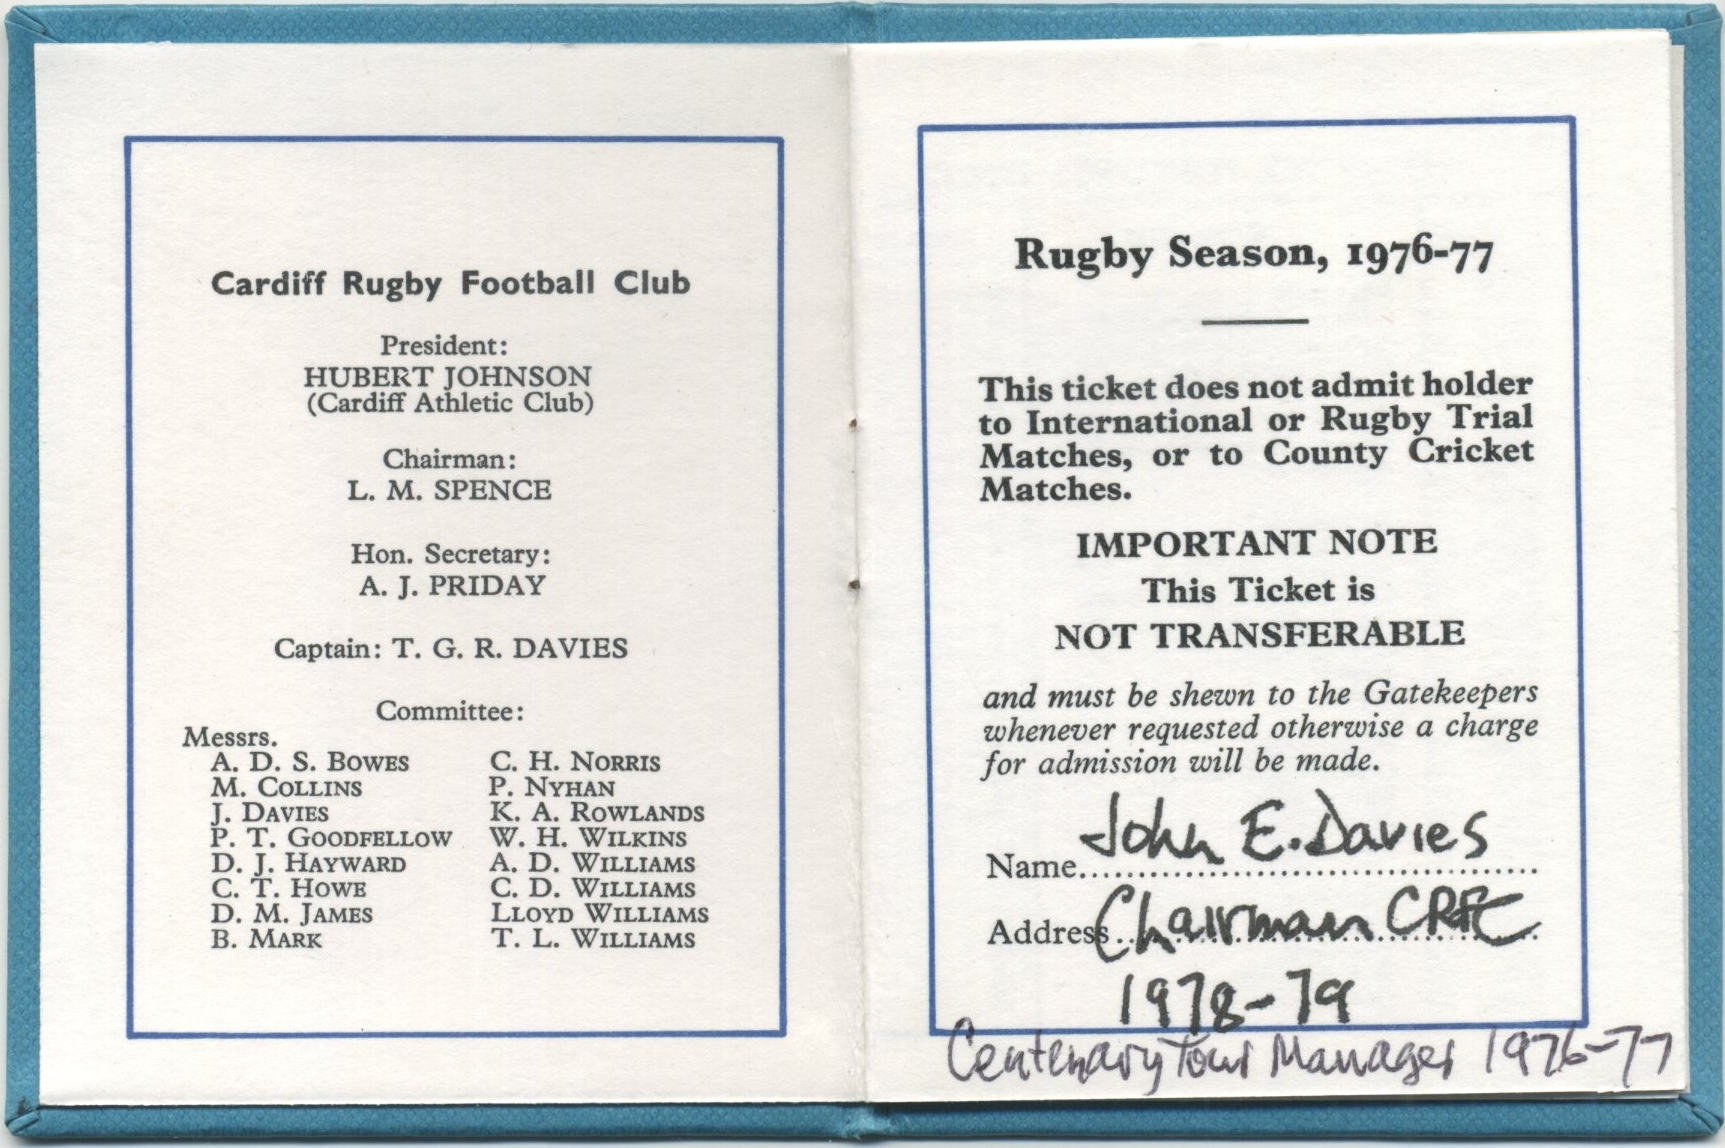 Cardiff Rugby Football Club
President:
HUBERT JOHNSON
(Cardiff Athletic Club)
Chairman:
L. M. SPENCE
Hon. Secretary:
A. J. PRIDAY
Captain: T. G. R. DAVIES
Committee:
Messrs.
A. D. S. BOWES
M. COLLINS
J. DAVIES
P. T. GOODFELLOW
D. J. HAYWARD
C. T. HOWE
D. M. JAMES
B. MARK
C. H. NORRIS
P. NYHAN
K. A. ROWLANDS
W. H. WILKINS
A. D. WILLIAMS
C. D. WILLIAMS
LLOYD WILLIAMS
T. L. WILLIAMS
Rugby Season, 1976-77
This ticket does not admit holder
to International or Rugby Trial
Matches, or to County Cricket
Matches.
IMPORTANT NOTE
This Ticket is
NOT TRANSFERABLE
and must be shewn to the Gatekeepers
whenever requested otherwise a charge
for admission will be made.
Name John E. Davies
Address Chairman CRFC
1978-79
Centenary Tour Manager 1976-77